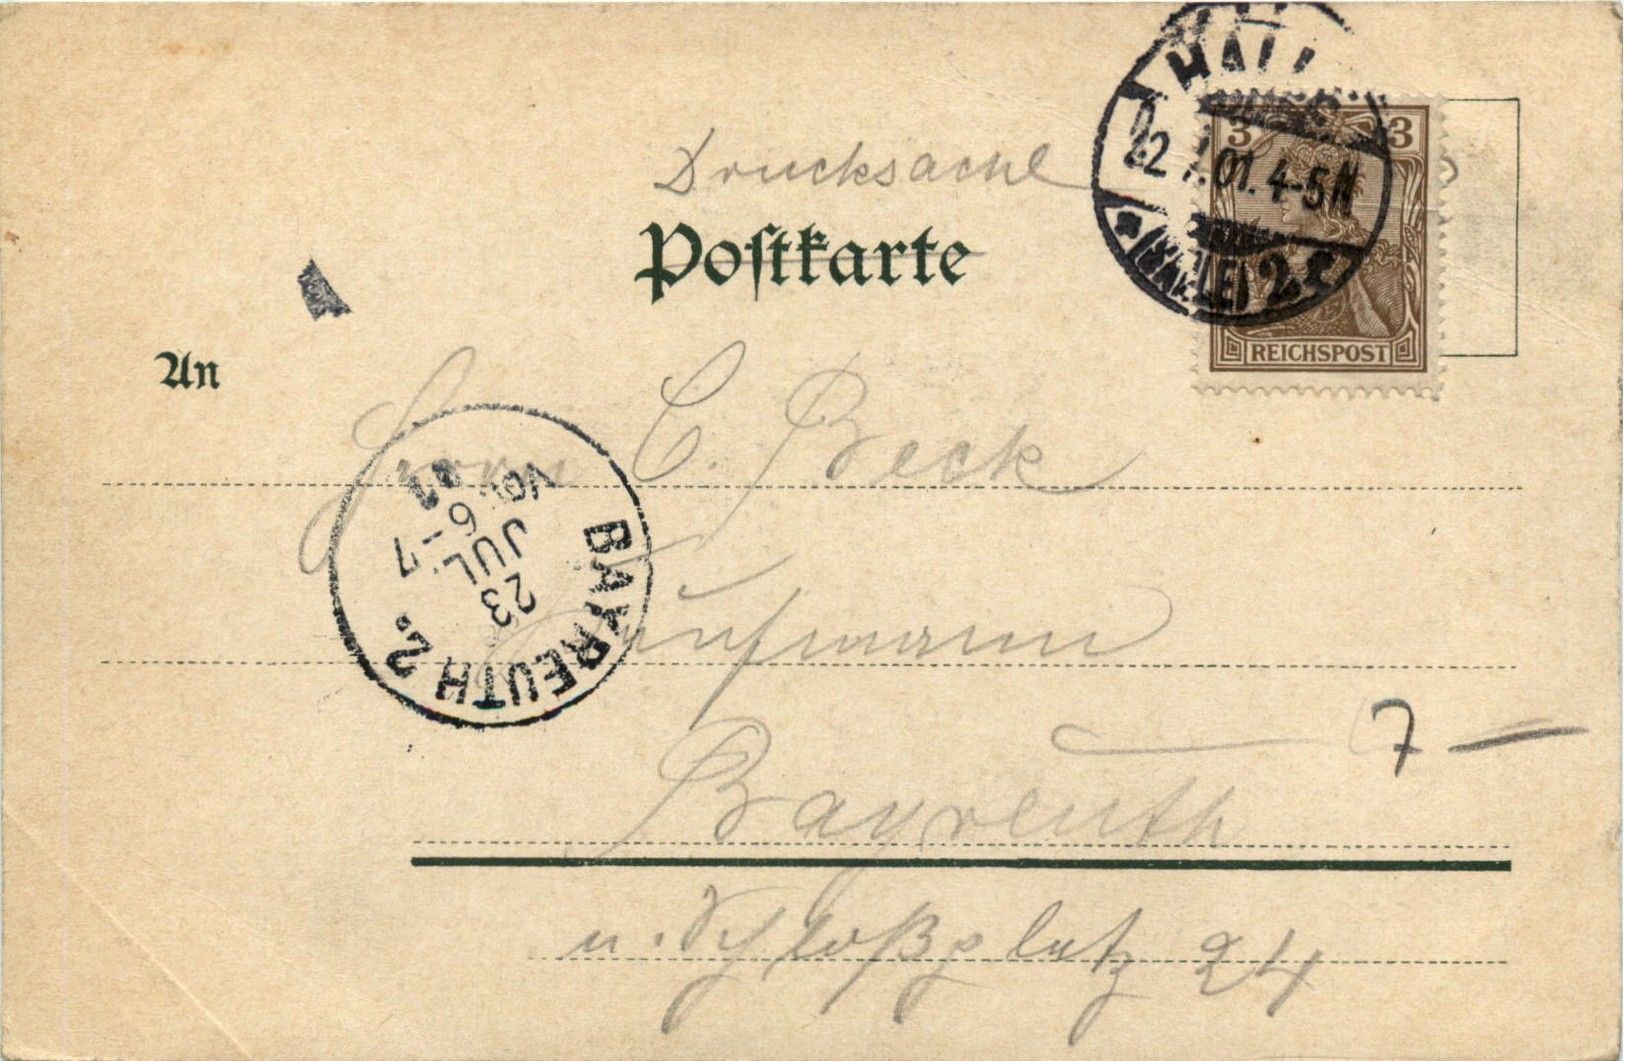 Drucksache
Postkarte
An
Herrn C. Beck
Kaufmann
Bayreuth
7 —
u. Schloßplatz 24
HALLE
22.7.01. 4-5N
(SAALE) 2
3 3
REICHSPOST
BAYREUTH 2.
23
JUL
6-7
VOR
01